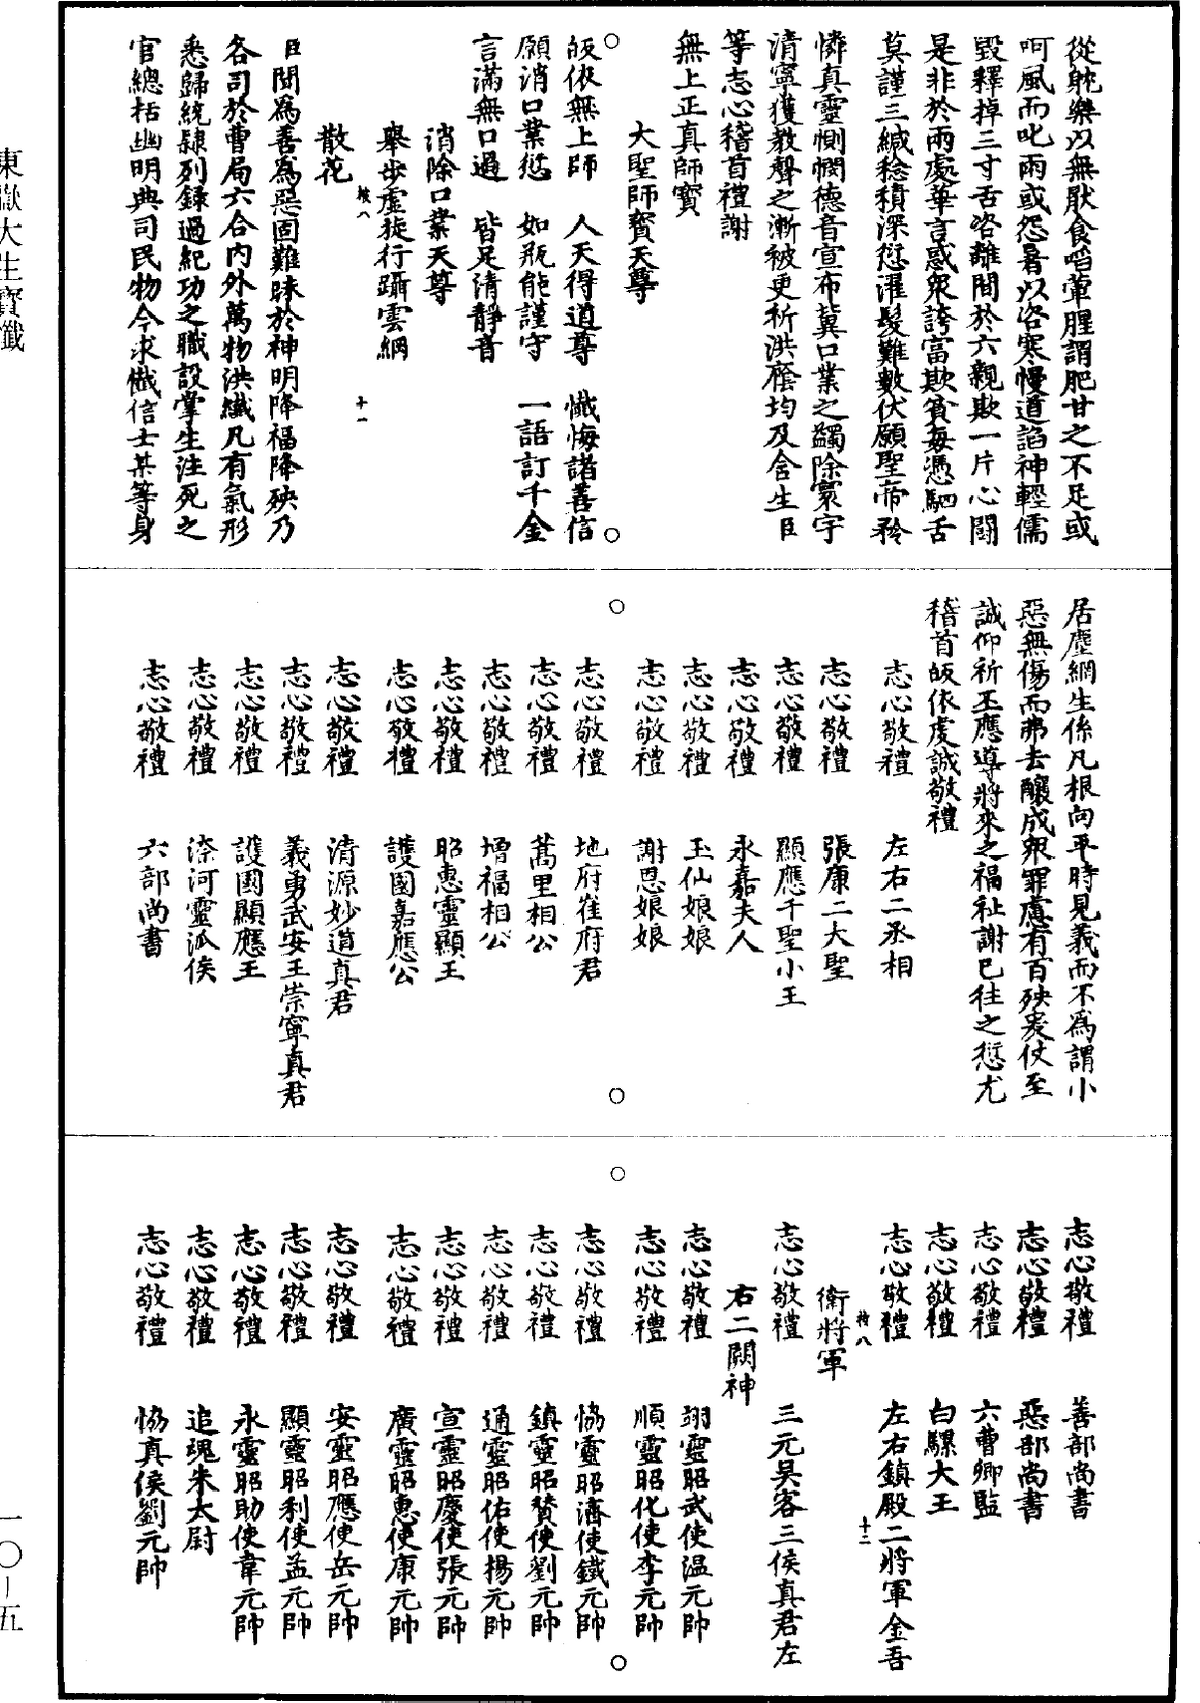 從躭樂以無厭食啗葷腥謂肥甘之不足或
呵風而叱雨或怨暑以咨寒慢道謟神輕儒
毀釋掉三寸舌咨離間於六親欺一片心鬪
是非於兩處華言惑衆誇富欺貧每憑駟舌
莫謹三緘稔積深愆濯髮難數伏願聖帝矜
憐真靈惻憫德音宣布冀口業之蠲除寰宇
清寧獲教聲之漸被更祈洪廕均及含生臣
等志心稽首禮謝
無上正真師寳
大聖師寳天尊
皈依無上師 人天得道尊 懺悔諸善信
願消口業愆 如瓶能謹守 一語訂千金
言滿無口過 皆足清靜音
消除口業天尊
舉步虛旋行躡雲綱
散花
十一
臣聞爲善爲惡固難昧於神明降福降殃乃
各司於曹局六合内外萬物洪纖凡有氣形
悉歸統隸列録過紀功之職設掌生注死之
官總括幽明典司民物今求懺信士某等身
居塵網生係凡根向平時見義而不爲謂小
惡無傷而弗去釀成衆罪慮有百殃爰仗至
誠仰祈玉應導將來之福祉謝已往之愆尤
稽首皈依虔誠敬禮
志心敬禮 左右二丞相
志心敬禮 張康二大聖
志心敬禮 顯應千聖小王
志心敬禮 永嘉夫人
志心敬禮 玉仙娘娘
志心敬禮 謝恩娘娘
志心敬禮 地府崔府君
志心敬禮 蒿里相公
志心敬禮 增福相公
志心敬禮 昭惠靈顯王
志心敬禮 護國嘉應公
志心敬禮 清源妙道真君
志心敬禮 義勇武安王崇寧真君
志心敬禮 護國顯應王
志心敬禮 渿河靈派侯
志心敬禮 六部尚書
志心敬禮 善部尚書
志心敬禮 惡部尚書
志心敬禮 六曹卿監
志心敬禮 白騾大王
志心敬禮 左右鎮殿二將軍金吾
十二
衛將軍
志心敬禮 三元吴客三侯真君左
右二闕神
志心敬禮 翊靈昭武使温元帥
志心敬禮 順靈昭化使李元帥
志心敬禮 恊靈昭濟使鐵元帥
志心敬禮 鎮靈昭贊使劉元帥
志心敬禮 通靈昭佑使楊元帥
志心敬禮 宣靈昭慶使張元帥
志心敬禮 廣靈昭惠使康元帥
志心敬禮 安靈昭應使岳元帥
志心敬禮 顯靈昭利使孟元帥
志心敬禮 永靈昭助使韋元帥
志心敬禮 追魂朱太尉
志心敬禮 恊真侯劉元帥
東嶽大生寳懺
一〇—五